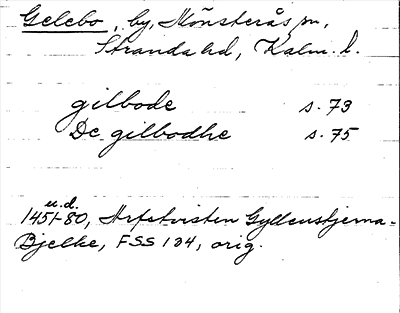 Gelebo, by, Mönsterås sn,
Stranda hd, Kalm. l.
gilbode s. 73
De gilbodhe s. 75
u.d.
1451-80, Arfstvisten Gyllenstjerna-
Bjelke, FSS 124, orig.